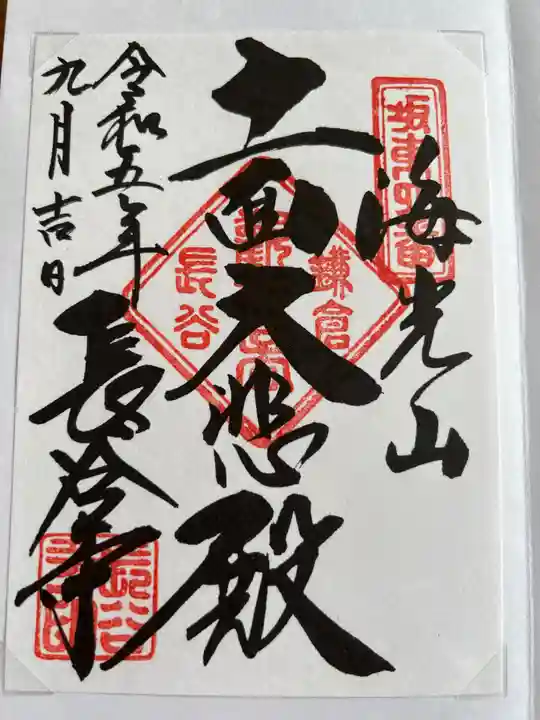 坂東四番
海光山
十一面大悲殿
鎌倉
長谷
令和五年
九月吉日
長谷寺